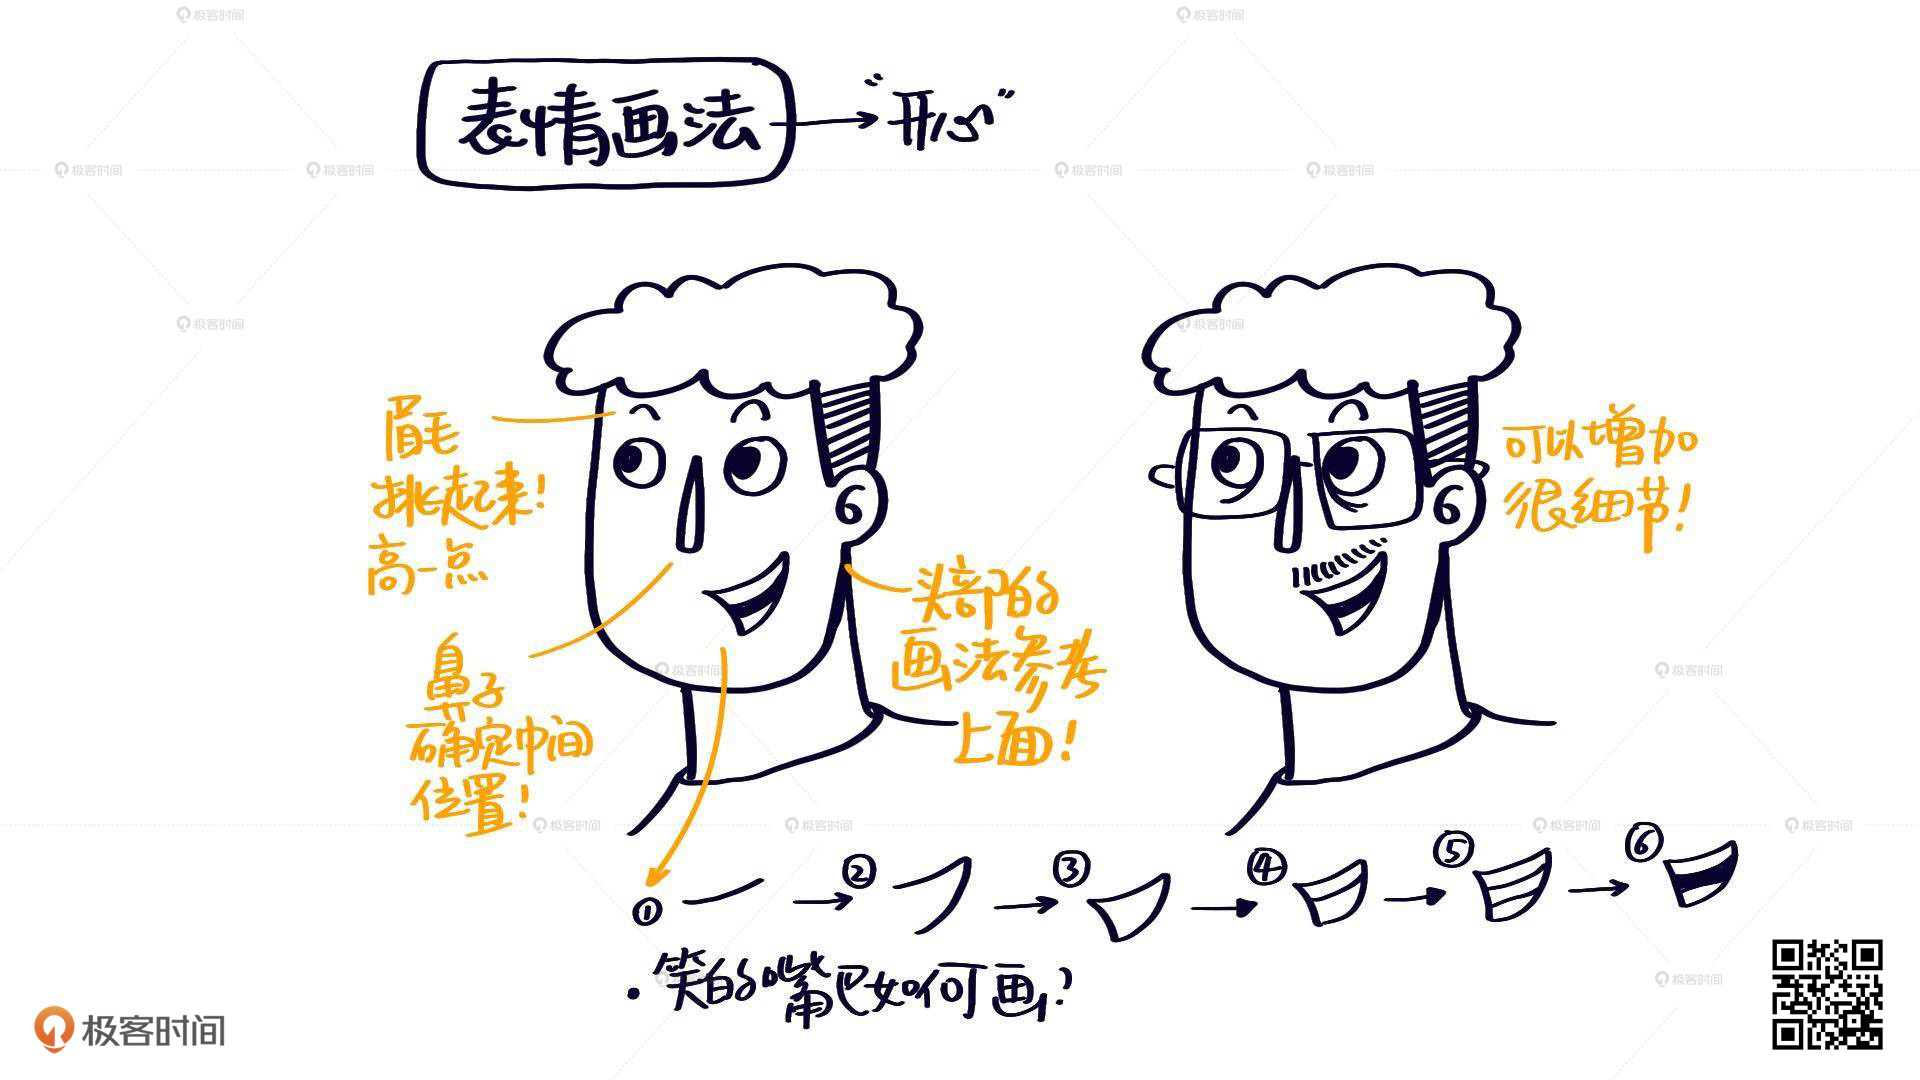 表情画法
“开心”
眉毛
挑起来!
高一点
鼻子
确定中间
位置!
头部的
画法参考
上面!
可以增加
很细节!
① ② ③ ④ ⑤ ⑥
·笑的嘴巴如何画?
极客时间